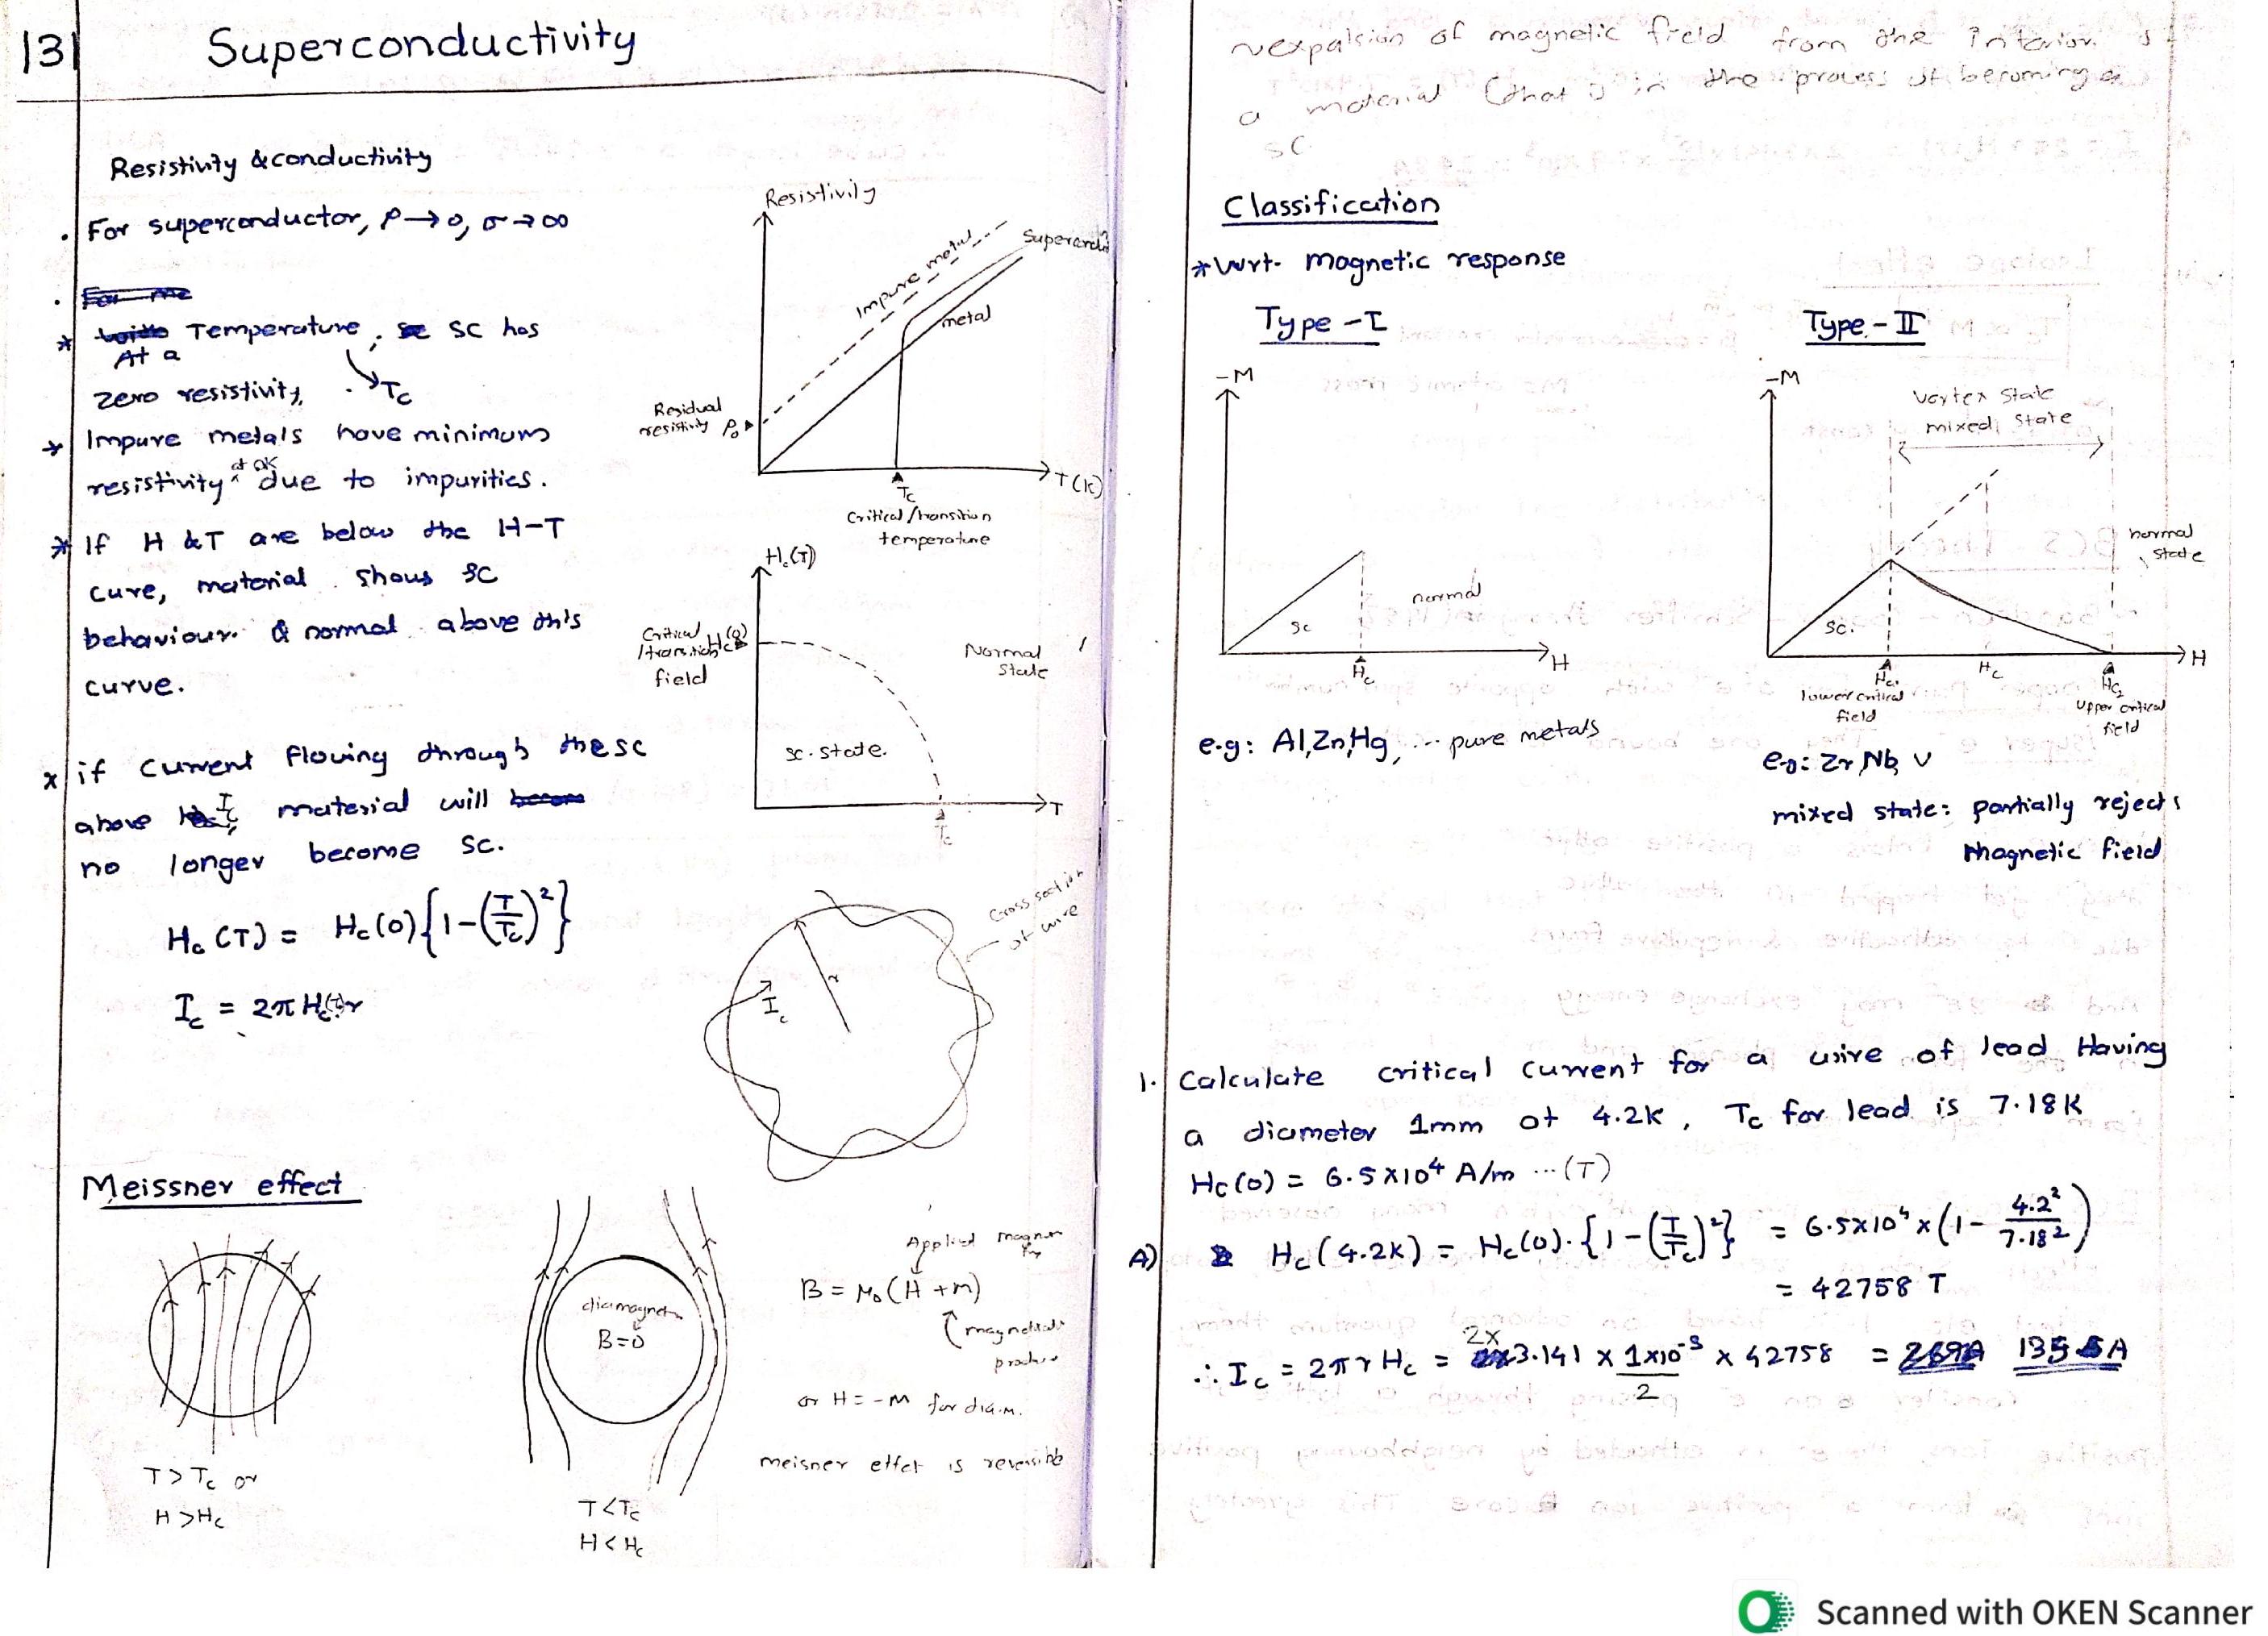 13
Superconductivity
Resistivity & conductivity
. For superconductor, ρ→0, σ→∞
* At a Temperature, SC has
Tc
zero resistivity,
* Impure metals have minimum
resistivity at 0K due to impurities.
* If H & T are below the H-T
cure, material shows SC
behaviour. & normal above this
curve.
* if current flowing through the sc
above Ic, material will
no longer become SC.
Hc (T) = Hc(0) {1-(T/Tc)²}
Ic = 2π Hc(T)r
Resistivity
Impure metal
metal
Residual
resistivity ρ₀
Tc
T(K)
Critical/transition
temperature
Hc(T)
Critical
/transition
field
Hc(0)
Normal
State
sc. state.
Tc
T
Cross section
of wire
r
Ic
Meissner effect
T > Tc or
H > Hc
diamagnet
B=0
T<Tc
H < Hc
Applied
B = μ₀ (H + m)
or H = -M for dia.m.
meisner effct is reversible
expalsion of magnetic field from the interior
a material (that is in the process of becoming a
SC
Classification
* wrt. magnetic response
Type - I
-M
sc
normal
Hc
H
e.g: Al, Zn, Hg, ... pure metals
Type - II
-M
Vortex State
mixed State
normal
state
sc.
Hc₁
lower critical
field
Hc
Hc₂
Upper critical
field
H
e.g: Zr, Nb, V
mixed state: partially rejects
magnetic field
1. Calculate critical current for a wire of lead Having
a diameter 1mm at 4.2K, Tc for lead is 7.18K
Hc(0) = 6.5×10⁴ A/m ...(T)
A) Hc(4.2K) = Hc(0).{1-(T/Tc)²} = 6.5×10⁴ × (1- 4.2²/7.18²)
= 42758 T
∴ Ic = 2πr Hc = 2×3.141 × 1×10⁻³/2 × 42758 =